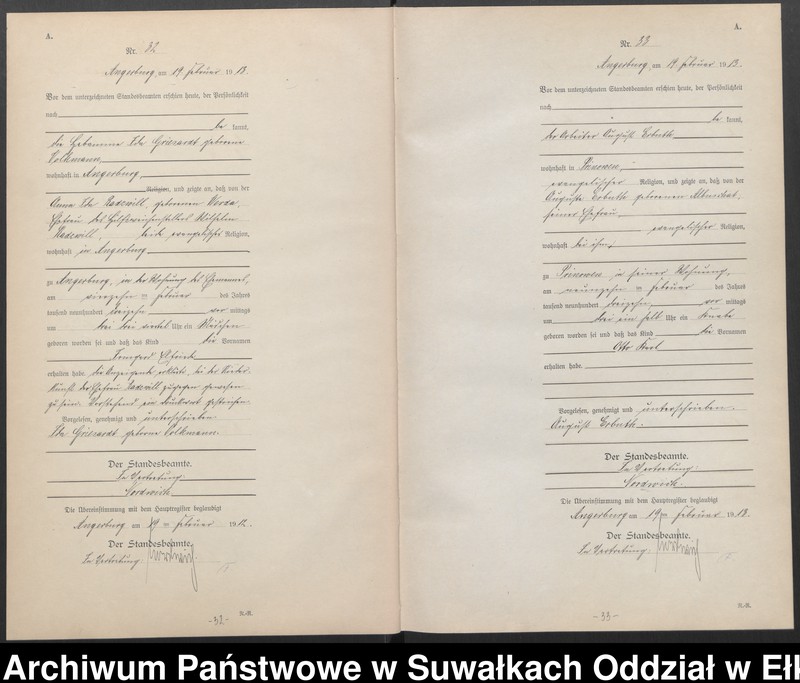 A.
Nr. 32
Angerburg, am 19. Februar 1913.
Vor dem unterzeichneten Standesbeamten erschien heute, der Persönlichkeit
nach
be kannt,
die Hebamme Ida geborene
Volkmann,
wohnhaft in Angerburg
Religion, und zeigte an, daß von der
Anna Ida Radzwill, geborenen
Ehefrau des Hilfsweichenstellers Wilhelm
Radzwill, beide evangelischer Religion,
wohnhaft in Angerburg
zu Angerburg, in der Wohnung des Ehemannes,
am vierzehn ten Februar des Jahres
tausend neunhundert dreizehn vor mittags
um drei drei viertel Uhr ein Mädchen
geboren worden sei und daß das Kind die Vornamen
Irmgard
erhalten habe. Die Anzeigende erklärte, bei der Nieder-
kunft der Ehefrau Radzwill zugegen gewesen
zu sein. Vorstehend ein Druckwort gestrichen.
Vorgelesen, genehmigt und unterschrieben.
Ida geborene Volkmann.
Der Standesbeamte.
In Vertretung:
Die Übereinstimmung mit dem Hauptregister beglaubigt
Angerburg am 19 ten Februar 191
Der Standesbeamte.
In Vertretung:
N.-R.
-32-
A.
Nr. 33
Angerburg, am 19. Februar 1913.
Vor dem unterzeichneten Standesbeamten erschien heute, der Persönlichkeit
nach
be kannt,
der Arbeiter August
wohnhaft in
evangelischer Religion, und zeigte an, daß von der
Auguste geborenen
seiner Ehefrau
evangelischer Religion,
wohnhaft bei ihm,
zu in seiner Wohnung,
am neunzehn ten Februar des Jahres
tausend neunhundert dreizehn vor mittags
um drei ein halb Uhr ein Knabe
geboren worden sei und daß das Kind die Vornamen
Otto Karl
erhalten habe.
Vorgelesen, genehmigt und unterschrieben.
August
Der Standesbeamte.
In Vertretung:
Die Übereinstimmung mit dem Hauptregister beglaubigt
Angerburg am 19 ten Februar 1913.
Der Standesbeamte.
In Vertretung:
N.-R.
-33-
Archiwum Państwowe w Suwałkach Oddział w Ełk